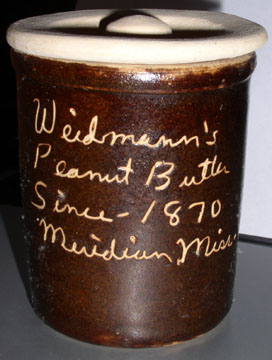 Weidmann's
Peanut Butter
Since-1870
Meridian Miss.